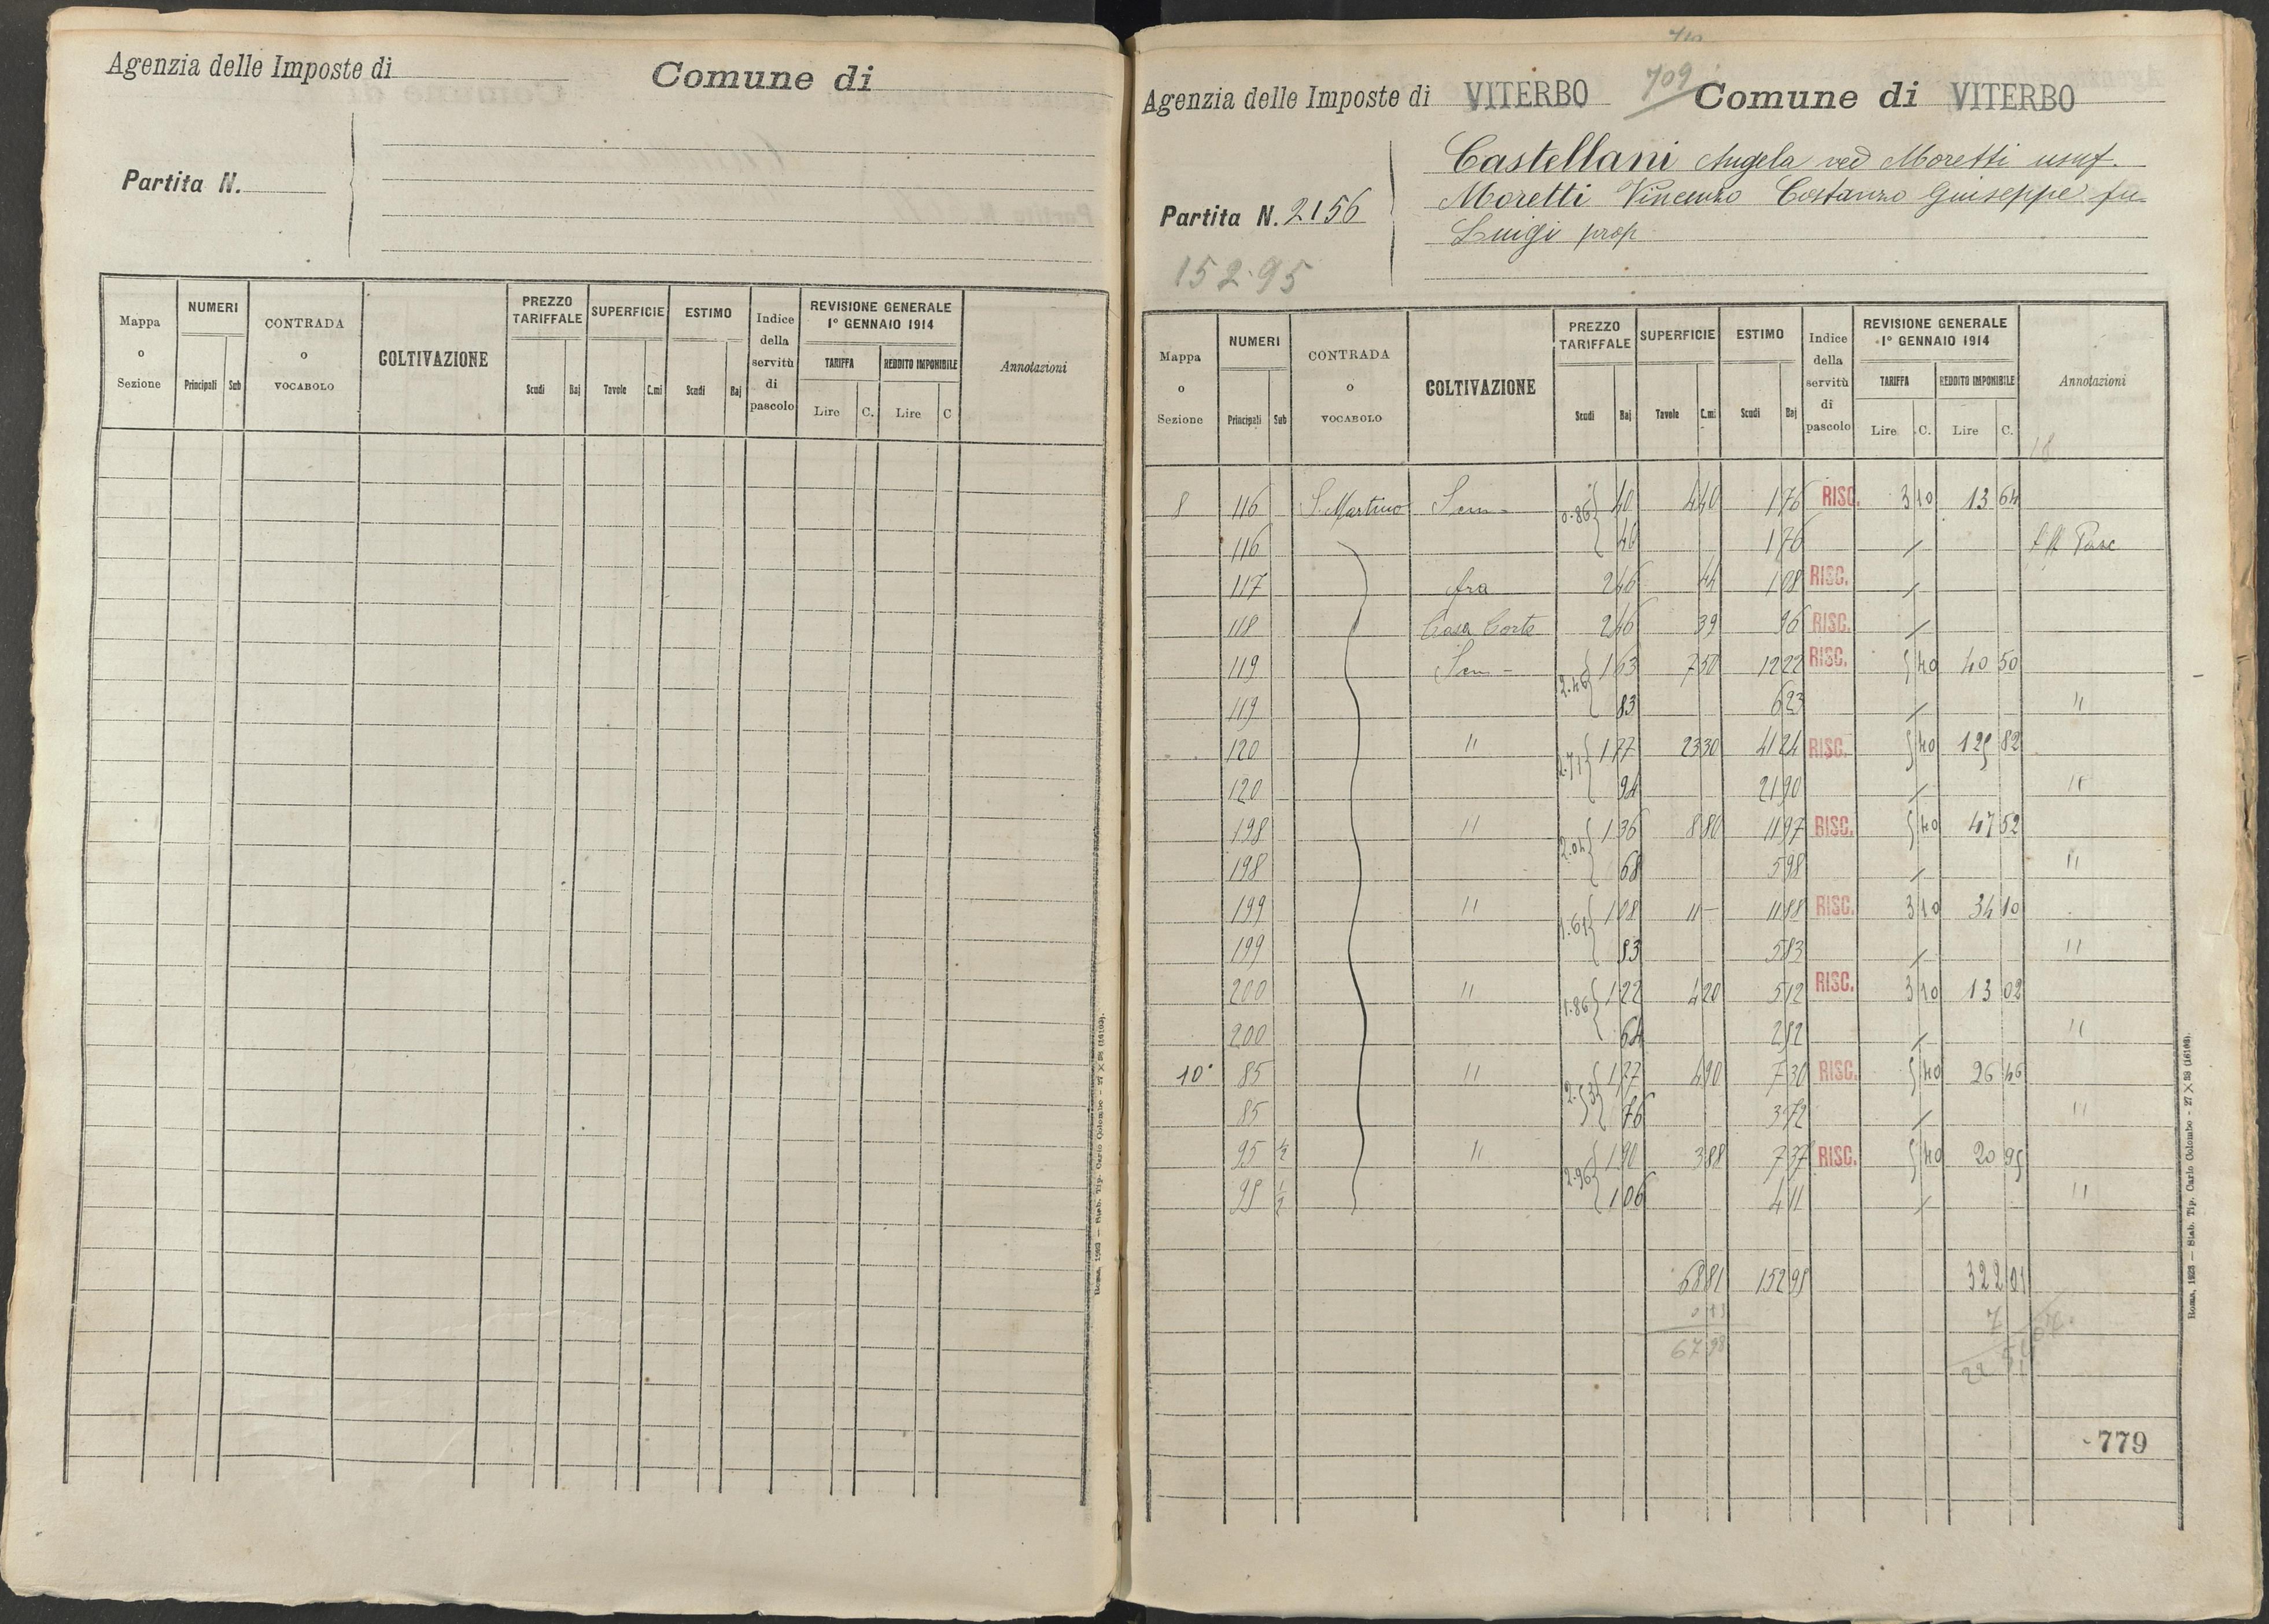 Agenzia delle Imposte di
Comune di
Partita N.
Mappa o Sezione
NUMERI
Principali Sub
CONTRADA o VOCABOLO
COLTIVAZIONE
PREZZO TARIFFALE
Scudi Baj
SUPERFICIE
Tavole C.mi
ESTIMO
Scudi Baj
Indice della servitù di pascolo
REVISIONE GENERALE 1° GENNAIO 1914
TARIFFA
Lire C.
REDDITO IMPONIBILE
Lire C
Annotazioni
Roma, 1923 — Stab. Tip. Carlo Colombo - 27 X 38 (16103).
709
Agenzia delle Imposte di VITERBO
Comune di VITERBO
Partita N. 2156
Castellani Angela ved Moretti usuf.
Moretti Vincenzo Costanzo Giuseppe fu
Luigi prop
152.95
Mappa o Sezione
NUMERI
Principali Sub
CONTRADA o VOCABOLO
COLTIVAZIONE
PREZZO TARIFFALE
Scudi Baj
SUPERFICIE
Tavole C.mi
ESTIMO
Scudi Baj
Indice della servitù di pascolo
REVISIONE GENERALE 1° GENNAIO 1914
TARIFFA
Lire C.
REDDITO IMPONIBILE
Lire C.
Annotazioni
18
8 116 S. Martino Sem - 0.86 40 4 40 1 76 RISC. 3 10 13 64
116 46 1 76 Pasc
117 Ara 2 46 44 1 08 RISC.
118 Casa Corte 2 46 39 96 RISC.
119 Sem - 2.46 1 63 7 50 12 22 RISC. 5 40 40 50
119 83 6 23 "
120 " 2.71 1 77 23 30 41 24 RISC. 5 40 125 82
120 94 21 90 "
198 " 2.04 1 36 8 80 11 97 RISC. 5 40 47 52
198 68 5 98 "
199 " 1.61 1 08 11 - 11 88 RISC. 3 10 34 10
199 83 5 83 "
200 " 1.86 1 22 4 20 5 12 RISC. 3 10 13 02
200 64 2 82 "
10 85 " 2.53 1 77 4 90 7 30 RISC. 5 40 26 46
85 76 3 72 "
95 1/2 " 2.96 1 90 3 88 7 37 RISC. 5 40 20 95
95 1/2 1 06 4 11 "
68 81 152 95 322 01
67 98
779
Roma, 1923 — Stab. Tip. Carlo Colombo - 27 X 38 (16103).